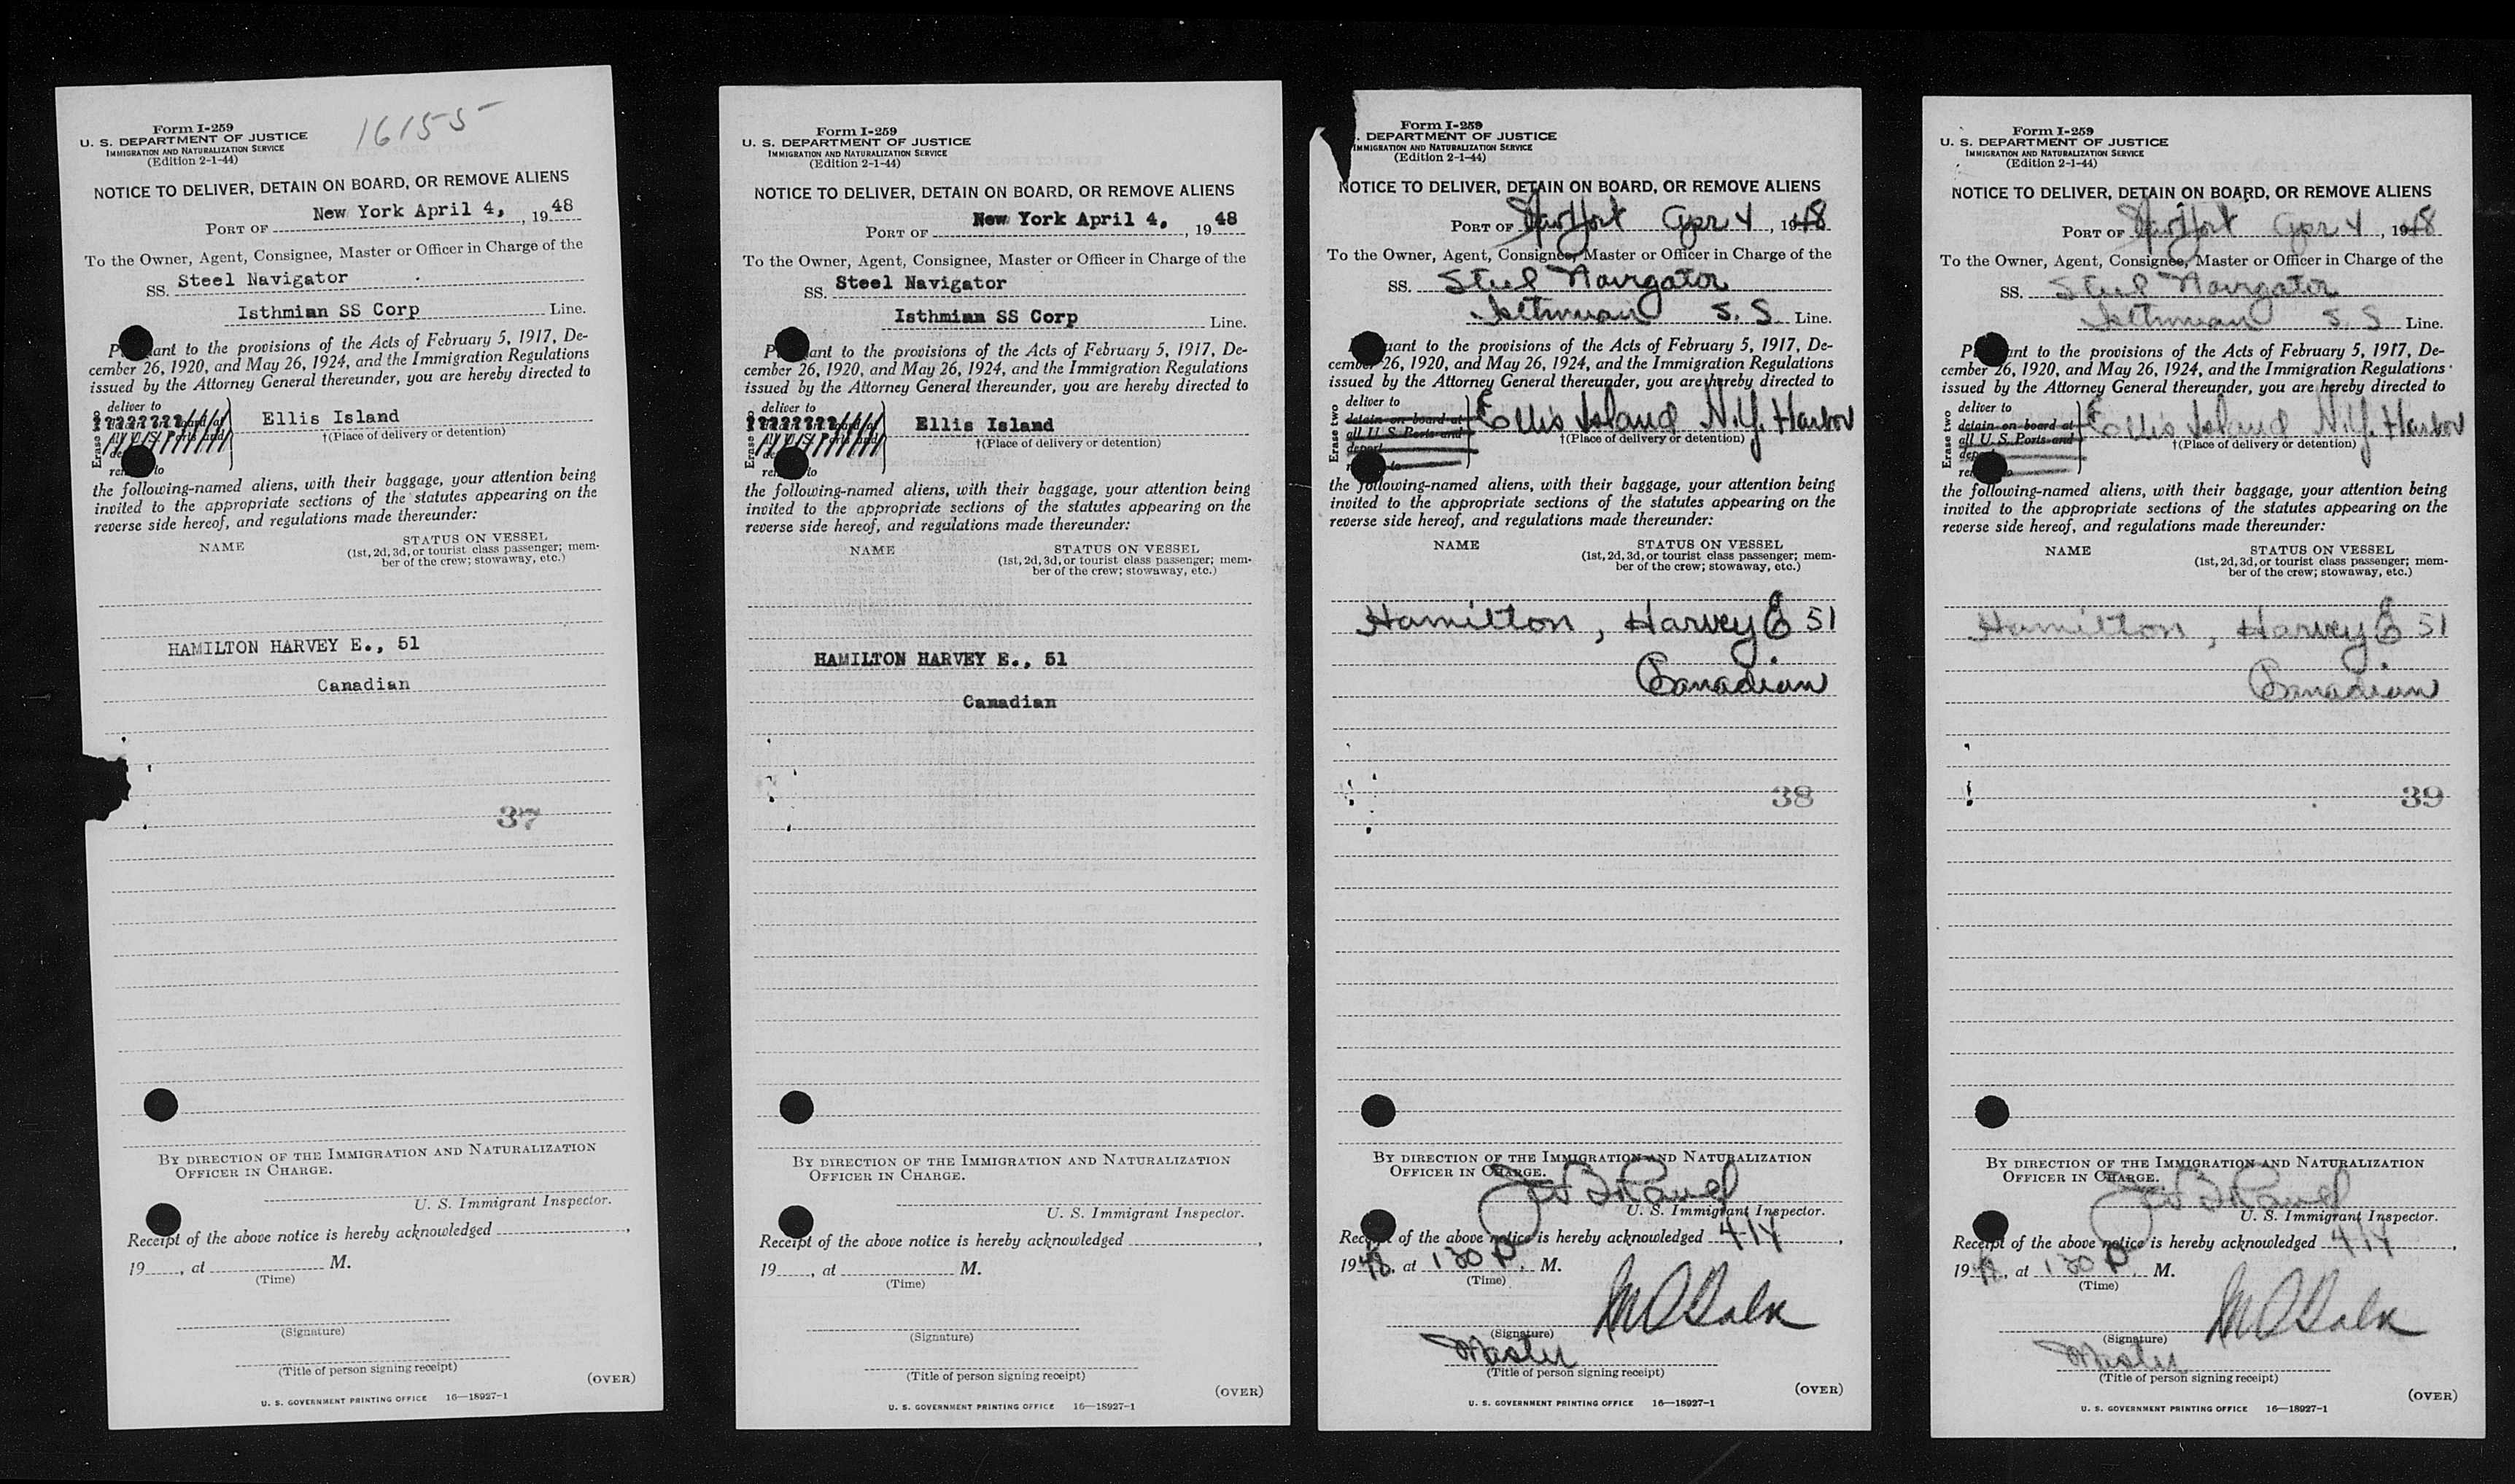 16155
Form I-259
U. S. DEPARTMENT OF JUSTICE
IMMIGRATION AND NATURALIZATION SERVICE
(Edition 2-1-44)
NOTICE TO DELIVER, DETAIN ON BOARD, OR REMOVE ALIENS
PORT OF New York April 4, , 19 48
To the Owner, Agent, Consignee, Master or Officer in Charge of the
SS. Steel Navigator
Isthmian SS Corp Line.
P ant to the provisions of the Acts of February 5, 1917, De-
cember 26, 1920, and May 26, 1924, and the Immigration Regulations
issued by the Attorney General thereunder, you are hereby directed to
Erase two
deliver to
all U.S. Ports and
Ellis Island
†(Place of delivery or detention)
to
the following-named aliens, with their baggage, your attention being
invited to the appropriate sections of the statutes appearing on the
reverse side hereof, and regulations made thereunder:
NAME STATUS ON VESSEL
(1st, 2d, 3d, or tourist class passenger; mem-
ber of the crew; stowaway, etc.)
HAMILTON HARVEY E., 51
Canadian
37
BY DIRECTION OF THE IMMIGRATION AND NATURALIZATION
OFFICER IN CHARGE.
U. S. Immigrant Inspector.
Receipt of the above notice is hereby acknowledged ,
19 , at M.
(Time)
(Signature)
(Title of person signing receipt)
(OVER)
U. S. GOVERNMENT PRINTING OFFICE 16—18927-1
Form I-259
U. S. DEPARTMENT OF JUSTICE
IMMIGRATION AND NATURALIZATION SERVICE
(Edition 2-1-44)
NOTICE TO DELIVER, DETAIN ON BOARD, OR REMOVE ALIENS
PORT OF New York April 4, , 19 48
To the Owner, Agent, Consignee, Master or Officer in Charge of the
SS. Steel Navigator
Isthmian SS Corp Line.
P ant to the provisions of the Acts of February 5, 1917, De-
cember 26, 1920, and May 26, 1924, and the Immigration Regulations
issued by the Attorney General thereunder, you are hereby directed to
Erase
deliver to
all U.S. Ports and
Ellis Island
†(Place of delivery or detention)
to
the following-named aliens, with their baggage, your attention being
invited to the appropriate sections of the statutes appearing on the
reverse side hereof, and regulations made thereunder:
NAME STATUS ON VESSEL
(1st, 2d, 3d, or tourist class passenger; mem-
ber of the crew; stowaway, etc.)
HAMILTON HARVEY E., 51
Canadian
BY DIRECTION OF THE IMMIGRATION AND NATURALIZATION
OFFICER IN CHARGE.
U. S. Immigrant Inspector.
Receipt of the above notice is hereby acknowledged ,
19 , at M.
(Time)
(Signature)
(Title of person signing receipt)
(OVER)
U. S. GOVERNMENT PRINTING OFFICE 16—18927-1
Form I-259
. DEPARTMENT OF JUSTICE
IMMIGRATION AND NATURALIZATION SERVICE
(Edition 2-1-44)
NOTICE TO DELIVER, DETAIN ON BOARD, OR REMOVE ALIENS
PORT OF New York Apr 4 , 1948
To the Owner, Agent, Consignee, Master or Officer in Charge of the
SS. Steel Navigator
Isthmian S. S. Line.
uant to the provisions of the Acts of February 5, 1917, De-
cember 26, 1920, and May 26, 1924, and the Immigration Regulations
issued by the Attorney General thereunder, you are hereby directed to
Erase two
deliver to
detain on board at
all U. S. Ports and
deport
to
Ellis Island N.Y. Harbor
†(Place of delivery or detention)
the following-named aliens, with their baggage, your attention being
invited to the appropriate sections of the statutes appearing on the
reverse side hereof, and regulations made thereunder:
NAME STATUS ON VESSEL
(1st, 2d, 3d, or tourist class passenger; mem-
ber of the crew; stowaway, etc.)
Hamilton, Harvey E. 51
Canadian
38
BY DIRECTION OF THE IMMIGRATION AND NATURALIZATION
OFFICER IN CHARGE.
U. S. Immigrant Inspector.
Receipt of the above notice is hereby acknowledged 4/4 ,
1948, at 130 P. M.
(Time)
(Signature)
Master
(Title of person signing receipt)
(OVER)
U. S. GOVERNMENT PRINTING OFFICE 16—18927-1
Form I-259
U. S. DEPARTMENT OF JUSTICE
IMMIGRATION AND NATURALIZATION SERVICE
(Edition 2-1-44)
NOTICE TO DELIVER, DETAIN ON BOARD, OR REMOVE ALIENS
PORT OF New York Apr 4 , 1948
To the Owner, Agent, Consignee, Master or Officer in Charge of the
SS. Steel Navigator
Isthmian S. S. Line.
P ant to the provisions of the Acts of February 5, 1917, De-
cember 26, 1920, and May 26, 1924, and the Immigration Regulations
issued by the Attorney General thereunder, you are hereby directed to
Erase two
deliver to
detain on board at
all U. S. Ports and
Ellis Island N.Y. Harbor
†(Place of delivery or detention)
the following-named aliens, with their baggage, your attention being
invited to the appropriate sections of the statutes appearing on the
reverse side hereof, and regulations made thereunder:
NAME STATUS ON VESSEL
(1st, 2d, 3d, or tourist class passenger; mem-
ber of the crew; stowaway, etc.)
Hamilton, Harvey E. 51
Canadian
39
BY DIRECTION OF THE IMMIGRATION AND NATURALIZATION
OFFICER IN CHARGE.
U. S. Immigrant Inspector.
Receipt of the above notice is hereby acknowledged 4/4 ,
1948, at 130 P. M.
(Time)
(Signature)
Master
(Title of person signing receipt)
(OVER)
U. S. GOVERNMENT PRINTING OFFICE 16—18927-1